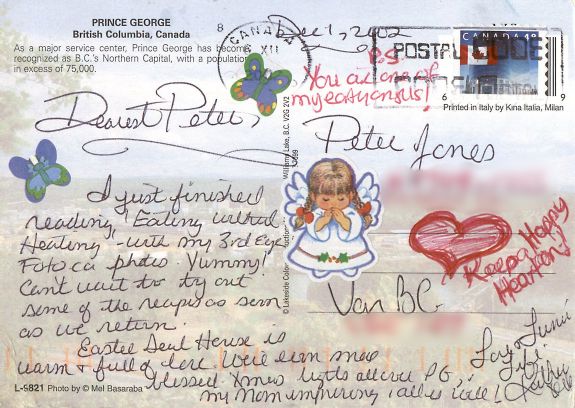 PRINCE GEORGE
British Columbia, Canada
As a major service center, Prince George has become
recognized as B.C.'s Northern Capital, with a population
in excess of 75,000.
8
Dec 1, 2002
CANADA
XII
POSTAL CODE
CANADA 48
6 9
Printed in Italy by Kina Italia, Milan
P.S.
You are one of
my earth angels!
Dearest Peter,
I just finished
reading "Eating
Healing - with my 3rd Eye
Foto ca photos. Yummy!
Can't wait to try out
some of the recipes as soon
as we return.
Easter Seal House is
warm & full of love. We're even more
blessed Xmas lights all over P.G.,
my Mom improving, all is well!
Williams Lake, B.C. V2G 2V2
© Lakeside Color
Peter Jones
Van BC
Keep a Happy
Heart
Love &
Life
L-9821 Photo by © Mel Basaraba